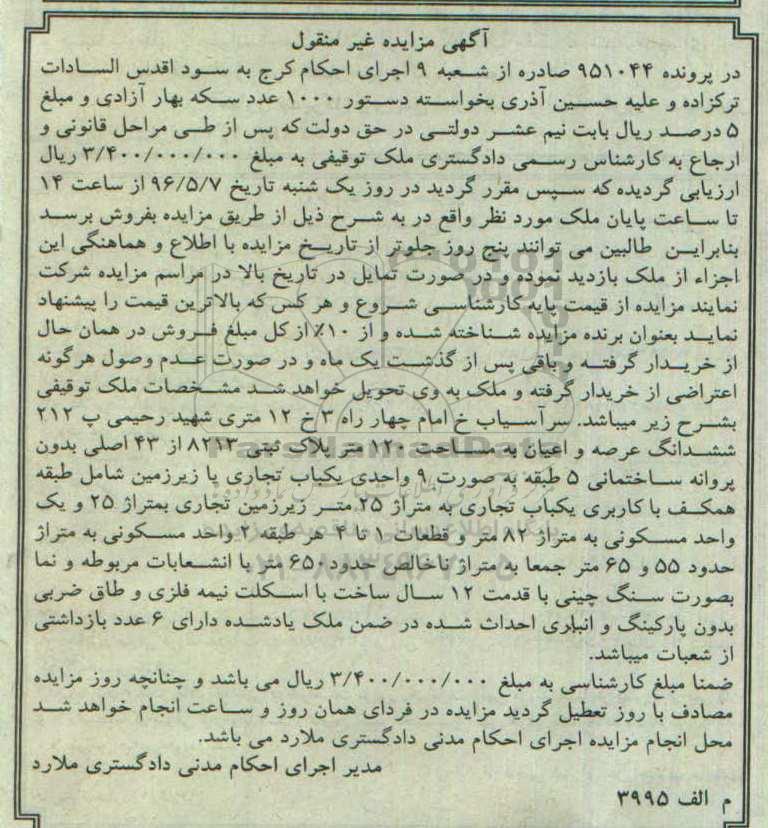 آگهی مزایده غیر منقول
در پرونده ۹۵۱۰۴۴ صادره از شعبه ۹ اجرای احکام کرج به سود اقدس السادات
ترکزاده و علیه حسین آذری بخواسته دستور ۱۰۰۰ عدد سکه بهار آزادی و مبلغ
۵ درصد ریال بابت نیم عشر دولتی در حق دولت که پس از طی مراحل قانونی و
ارجاع به کارشناس رسمی دادگستری ملک توقیفی به مبلغ ۳/۴۰۰/۰۰۰/۰۰۰ ریال
ارزیابی گردیده که سپس مقرر گردید در روز یک شنبه تاریخ ۹۶/۵/۷ از ساعت ۱۴
تا ساعت پایان ملک مورد نظر واقع در به شرح ذیل از طریق مزایده بفروش برسد
بنابراین طالبین می توانند پنج روز جلوتر از تاریخ مزایده با اطلاع و هماهنگی این
اجراء از ملک بازدید نموده و در صورت تمایل در تاریخ بالا در مراسم مزایده شرکت
نمایند مزایده از قیمت پایه کارشناسی شروع و هر کس که بالاترین قیمت را پیشنهاد
نماید بعنوان برنده مزایده شناخته شده و از ۱۰٪ از کل مبلغ فروش در همان حال
از خریدار گرفته و باقی پس از گذشت یک ماه و در صورت عدم وصول هرگونه
اعتراضی از خریدار گرفته و ملک به وی تحویل خواهد شد مشخصات ملک توقیفی
بشرح زیر میباشد. سرآسیاب خ امام چهار راه ۳ خ ۱۲ متری شهید رحیمی پ ۲۱۲
ششدانگ عرصه و اعیان به مساحت ۱۲۰ متر پلاک ثبتی ۸۲۱۳ از ۴۳ اصلی بدون
پروانه ساختمانی ۵ طبقه به صورت ۹ واحدی یکباب تجاری با زیرزمین شامل طبقه
همکف با کاربری یکباب تجاری به متراژ ۲۵ متر زیرزمین تجاری بمتراژ ۲۵ و یک
واحد مسکونی به متراژ ۸۲ متر و قطعات ۱ تا ۴ هر طبقه ۲ واحد مسکونی به متراژ
حدود ۵۵ و ۶۵ متر جمعا به متراژ ناخالص حدود ۶۵۰ متر با انشعابات مربوطه و نما
بصورت سنگ چینی با قدمت ۱۲ سال ساخت با اسکلت نیمه فلزی و طاق ضربی
بدون پارکینگ و انباری احداث شده در ضمن ملک یادشده دارای ۶ عدد بازداشتی
از شعبات میباشد.
ضمنا مبلغ کارشناسی به مبلغ ۳/۴۰۰/۰۰۰/۰۰۰ ریال می باشد و چنانچه روز مزایده
مصادف با روز تعطیل گردید مزایده در فردای همان روز و ساعت انجام خواهد شد
محل انجام مزایده اجرای احکام مدنی دادگستری ملارد می باشد.
مدیر اجرای احکام مدنی دادگستری ملارد
م الف ۳۹۹۵